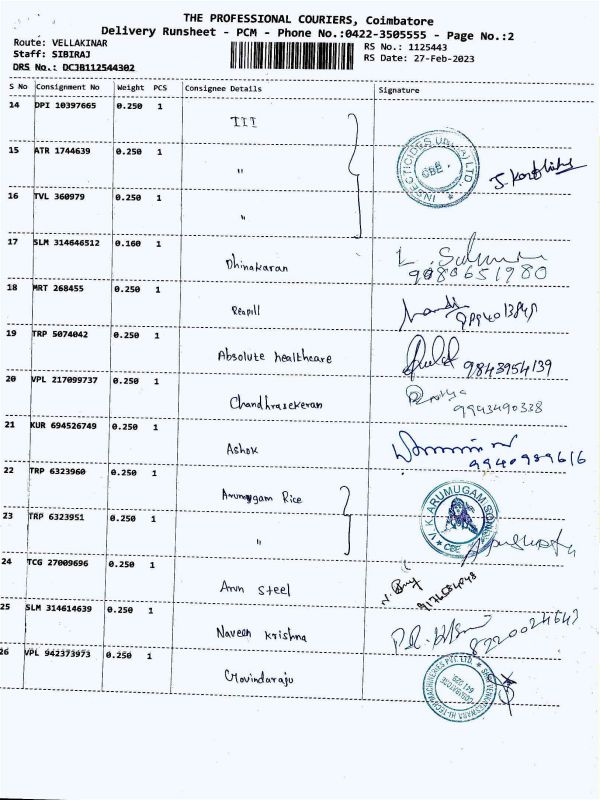 THE PROFESSIONAL COURIERS, Coimbatore
Delivery Runsheet - PCM - Phone No.:0422-3505555 - Page No.:2
Route: VELLAKINAR
RS No.: 1125443
Staff: SIBIRAJ
RS Date: 27-Feb-2023
DRS No.: DCJB112544302
S No Consignment No Weight PCS Consignee Details Signature
14 DPI 10397665 0.250 1 III
15 ATR 1744639 0.250 1 "
INSECTICIDES LTD. CBE
16 TVL 360979 0.250 1 "
17 SLM 314646512 0.160 1 Dhinakaran
9080651980
18 MRT 268455 0.250 1 Redpill
19 TRP 5074042 0.250 1 Absolute healthcare
9843954139
20 VPL 217099737 0.250 1 Chandhrasekeran
9943490338
21 KUR 694526749 0.250 1 Ashok
9940989616
22 TRP 6323960 0.250 1 Arumugam Rice
V.K. ARUMUGAM SONS CBE
23 TRP 6323951 0.250 1 "
24 TCG 27009696 0.250 1 Arun Steel
25 SLM 314614639 0.250 1 Naveen Krishna
8220024643
26 VPL 942373973 0.250 1 Govindaraju